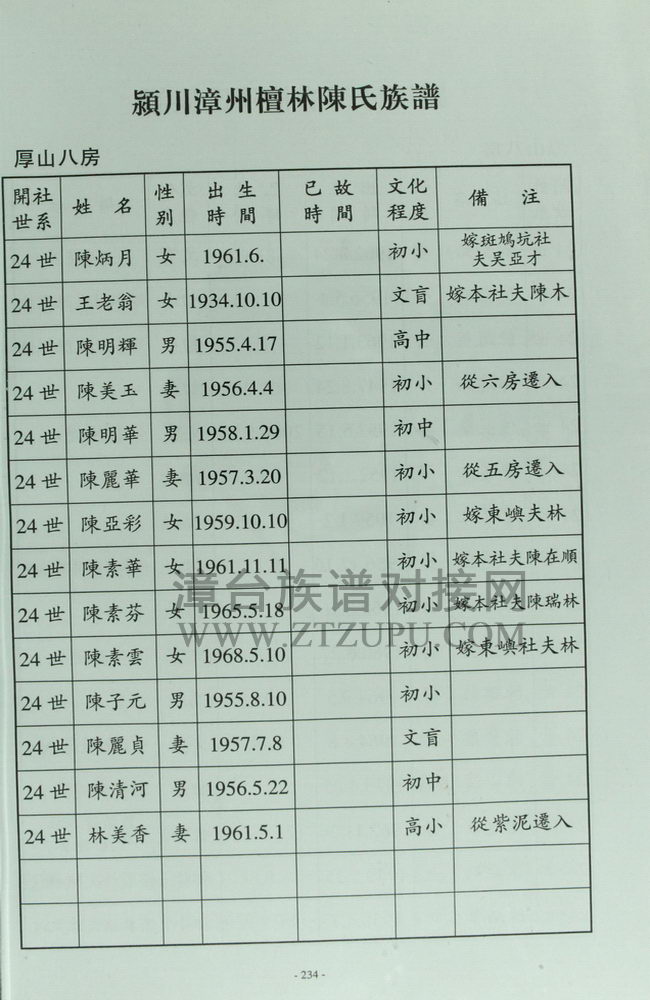 潁川漳州檀林陳氏族譜
厚山八房
開社世系 姓名 性别 出生時間 已故時間 文化程度 備注
24世 陳炳月 女 1961.6. 初小 嫁斑鳩坑社夫吴亞才
24世 王老翁 女 1934.10.10 文盲 嫁本社夫陳木
24世 陳明輝 男 1955.4.17 高中
24世 陳美玉 妻 1956.4.4 初小 從六房遷入
24世 陳明華 男 1958.1.29 初中
24世 陳麗華 妻 1957.3.20 初小 從五房遷入
24世 陳亞彩 女 1959.10.10 初小 嫁東嶼夫林
24世 陳素華 女 1961.11.11 初小 嫁本社夫陳在順
24世 陳素芬 女 1965.5.18 初小 嫁本社夫陳瑞林
24世 陳素雲 女 1968.5.10 初小 嫁東嶼社夫林
24世 陳子元 男 1955.8.10 初小
24世 陳麗貞 妻 1957.7.8 文盲
24世 陳清河 男 1956.5.22 初中
24世 林美香 妻 1961.5.1 高小 從紫泥遷入
漳台族谱对接网
WWW.ZTZUPU.COM
- 234 -